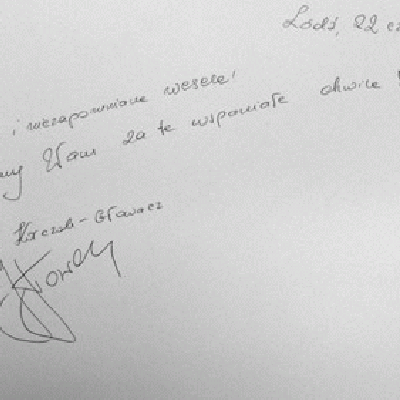 Łódź, 22 cz
i niezapomniane wesele!
my Wam za te wspaniałe chwile!
Korczak-Głowacz